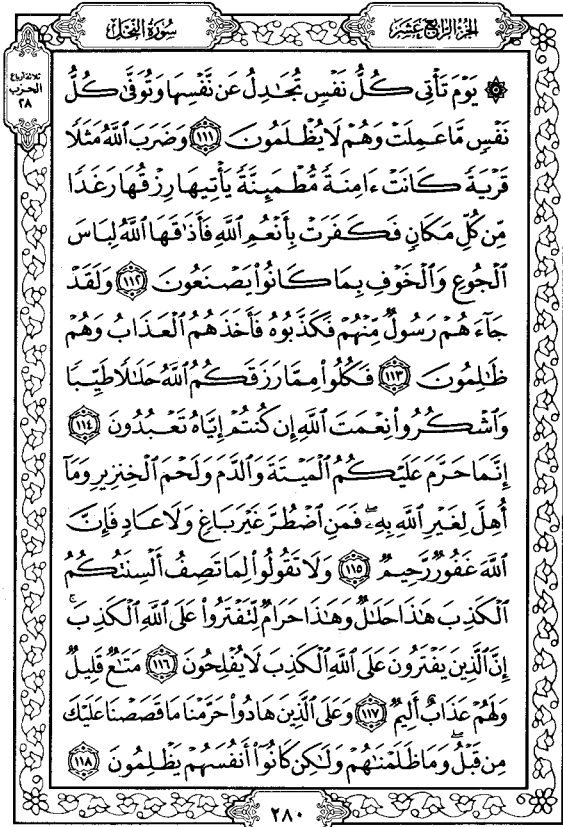 سُورَةُ النَّحْلِ
الجُزْءُ الرَّابِعَ عَشَرَ
ثلاثة أرباع
الحزب
٢٨
۞ يَوْمَ تَأْتِى كُلُّ نَفْسٍ تُجَٰدِلُ عَن نَّفْسِهَا وَتُوَفَّىٰ كُلُّ
نَفْسٍ مَّا عَمِلَتْ وَهُمْ لَا يُظْلَمُونَ ١١١ وَضَرَبَ ٱللَّهُ مَثَلًا
قَرْيَةً كَانَتْ ءَامِنَةً مُّطْمَئِنَّةً يَأْتِيهَا رِزْقُهَا رَغَدًا
مِّن كُلِّ مَكَانٍ فَكَفَرَتْ بِأَنْعُمِ ٱللَّهِ فَأَذَٰقَهَا ٱللَّهُ لِبَاسَ
ٱلْجُوعِ وَٱلْخَوْفِ بِمَا كَانُوا۟ يَصْنَعُونَ ١١٢ وَلَقَدْ
جَآءَهُمْ رَسُولٌ مِّنْهُمْ فَكَذَّبُوهُ فَأَخَذَهُمُ ٱلْعَذَابُ وَهُمْ
ظَٰلِمُونَ ١١٣ فَكُلُوا۟ مِمَّا رَزَقَكُمُ ٱللَّهُ حَلَٰلًا طَيِّبًا
وَٱشْكُرُوا۟ نِعْمَتَ ٱللَّهِ إِن كُنتُمْ إِيَّاهُ تَعْبُدُونَ ١١٤
إِنَّمَا حَرَّمَ عَلَيْكُمُ ٱلْمَيْتَةَ وَٱلدَّمَ وَلَحْمَ ٱلْخِنزِيرِ وَمَآ
أُهِلَّ لِغَيْرِ ٱللَّهِ بِهِۦ فَمَنِ ٱضْطُرَّ غَيْرَ بَاغٍ وَلَا عَادٍ فَإِنَّ
ٱللَّهَ غَفُورٌ رَّحِيمٌ ١١٥ وَلَا تَقُولُوا۟ لِمَا تَصِفُ أَلْسِنَتُكُمُ
ٱلْكَذِبَ هَٰذَا حَلَٰلٌ وَهَٰذَا حَرَامٌ لِّتَفْتَرُوا۟ عَلَى ٱللَّهِ ٱلْكَذِبَ ۚ
إِنَّ ٱلَّذِينَ يَفْتَرُونَ عَلَى ٱللَّهِ ٱلْكَذِبَ لَا يُفْلِحُونَ ١١٦ مَتَٰعٌ قَلِيلٌ
وَلَهُمْ عَذَابٌ أَلِيمٌ ١١٧ وَعَلَى ٱلَّذِينَ هَادُوا۟ حَرَّمْنَا مَا قَصَصْنَا عَلَيْكَ
مِن قَبْلُ ۖ وَمَا ظَلَمْنَٰهُمْ وَلَٰكِن كَانُوٓا۟ أَنفُسَهُمْ يَظْلِمُونَ ١١٨
٢٨٠